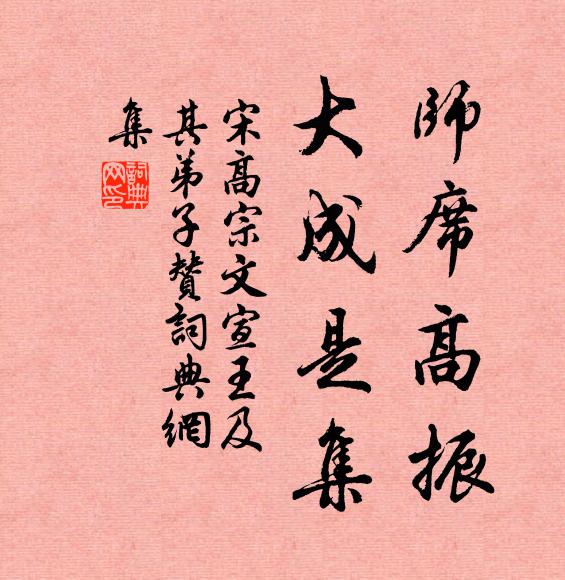 師席高振
大成是集
宋高宗文宣王及
其弟子贊詞典網
集
詞典網印